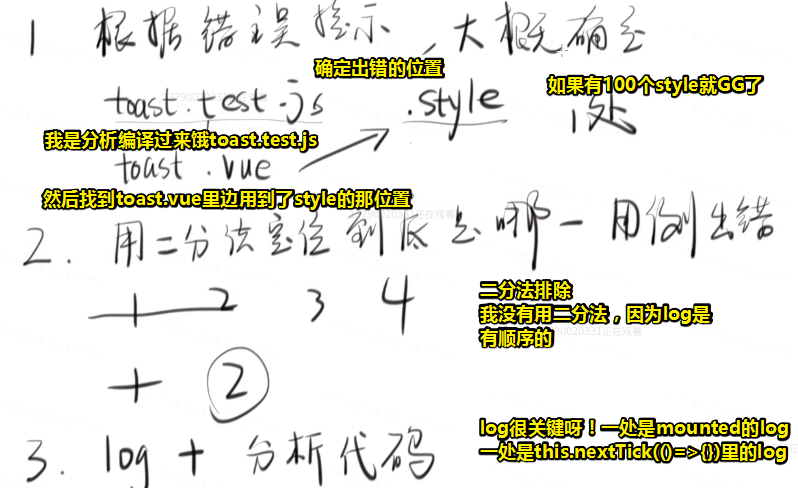 1 根据错误提示，大概确定
确定出错的位置
toast.test.js .style 1处
如果有100个style就GG了
我是分析编译过来饿toast.test.js
toast.vue
然后找到toast.vue里边用到了style的那位置
2. 用二分法定位到底是哪一用例出错
1 2 3 4
二分法排除
我没有用二分法，因为log是
有顺序的
+ 2
log很关键呀！一处是mounted的log
一处是this.nextTick(()=>{})里的log
3. log + 分析代码